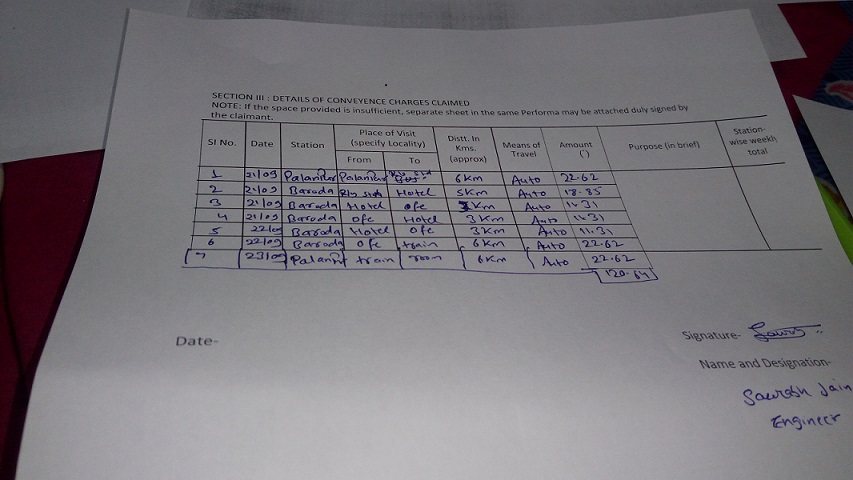 SECTION III : DETAILS OF CONVEYENCE CHARGES CLAIMED
NOTE: If the space provided is insufficient, separate sheet in the same Performa may be attached duly signed by
the claimant.
SI No. Date Station Place of Visit (specify Locality) From To Distt. In Kms. (approx) Means of Travel Amount (`) Purpose (in brief) Station-wise weekly total
1 21/09 Palanpur Palanpur 6 Km Auto 22.62
2 21/09 Baroda Rly stn Hotel 5Km Auto 18.85
3 21/09 Baroda Hotel ofc 3Km Auto 11.31
4 21/09 Baroda ofc Hotel 3 Km Auto 11.31
5 22/09 Baroda Hotel ofc 3Km Auto 11.31
6 22/09 Baroda ofc train 6 Km Auto 22.62
7 23/09 Palanpur train room 6Km Auto 22.62
120.64
Date-
Signature-
Name and Designation-
Saurabh Jain
Engineer